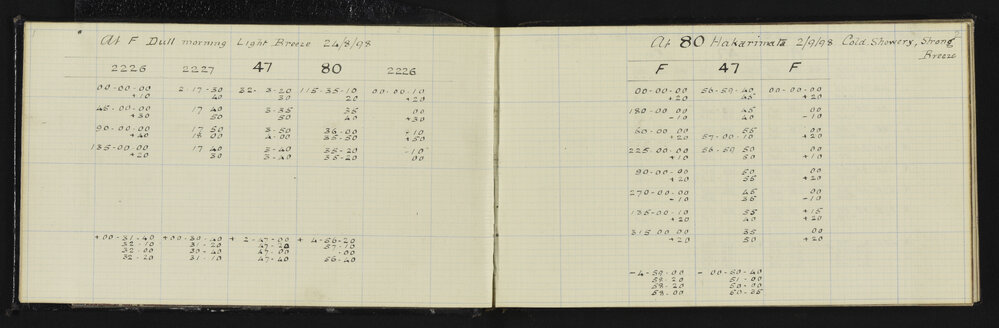 At F Dull morning Light Breeze 24/8/98
2226 2227 47 80 2226
00-00-00 2-17-30 32-3-20 115-35-10 00-00-10
+10 40 30 20 +20
45-00-00 17 40 3-35 35 00
+30 50 50 40 +30
90-00-00 17 50 3-50 36-00 +10
+40 18 00 4-00 35-50 +50
135-00-00 17 40 3-40 35-20 -10
+20 30 3-40 35-20 00
+00-31-40 +00-30-40 + 2-47-00 + 4-56-20
32-10 31-20 47-20 57-10
32-00 30-40 47-00 00
32-20 31-10 47-40 56-40
At 80 Hakarimata 2/9/98 Cold Showery, Strong
Breeze
F 47 F
00-00-00 56-59-40 00-00-00
+20 45 +20
180-00-00 45 00
-10 40 -10
60-00-00 55 00
+20 57-00-10 +20
225-00-00 56-59 50 00
+10 50 +10
90-00-00 50 00
+20 55 +20
270-00-00 45 00
-10 35 -10
135-00-10 35 +15
+20 40 +20
315 00 00 35 00
+20 50 +20
-4-59-00 - 00-50-40
59-20 51-00
58-20 50-00
58-00 50-35